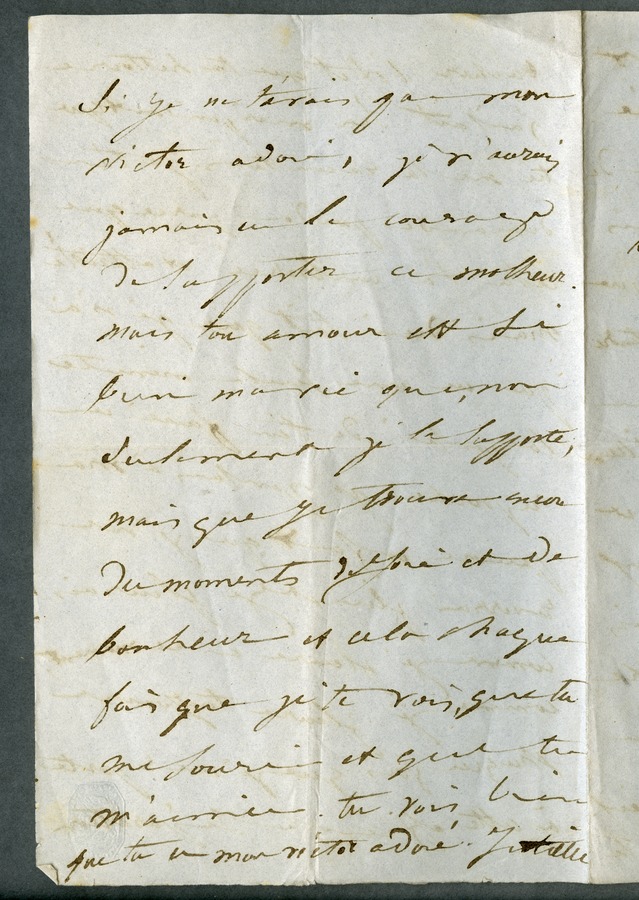 Si je ne t'avais pas mon
victor adoré, je n'aurais
jamais eu le courage
de supporter ce malheur.
mais ton amour est si
béni ma vie que, non
seulement je la supporte,
mais que je trouve encore
des moments de joie et de
bonheur et cela chaque
fois que je te vois, que tu
me souris et que tu
m'aimes. tu vois bien
que tu es mon victor adoré. Juliette